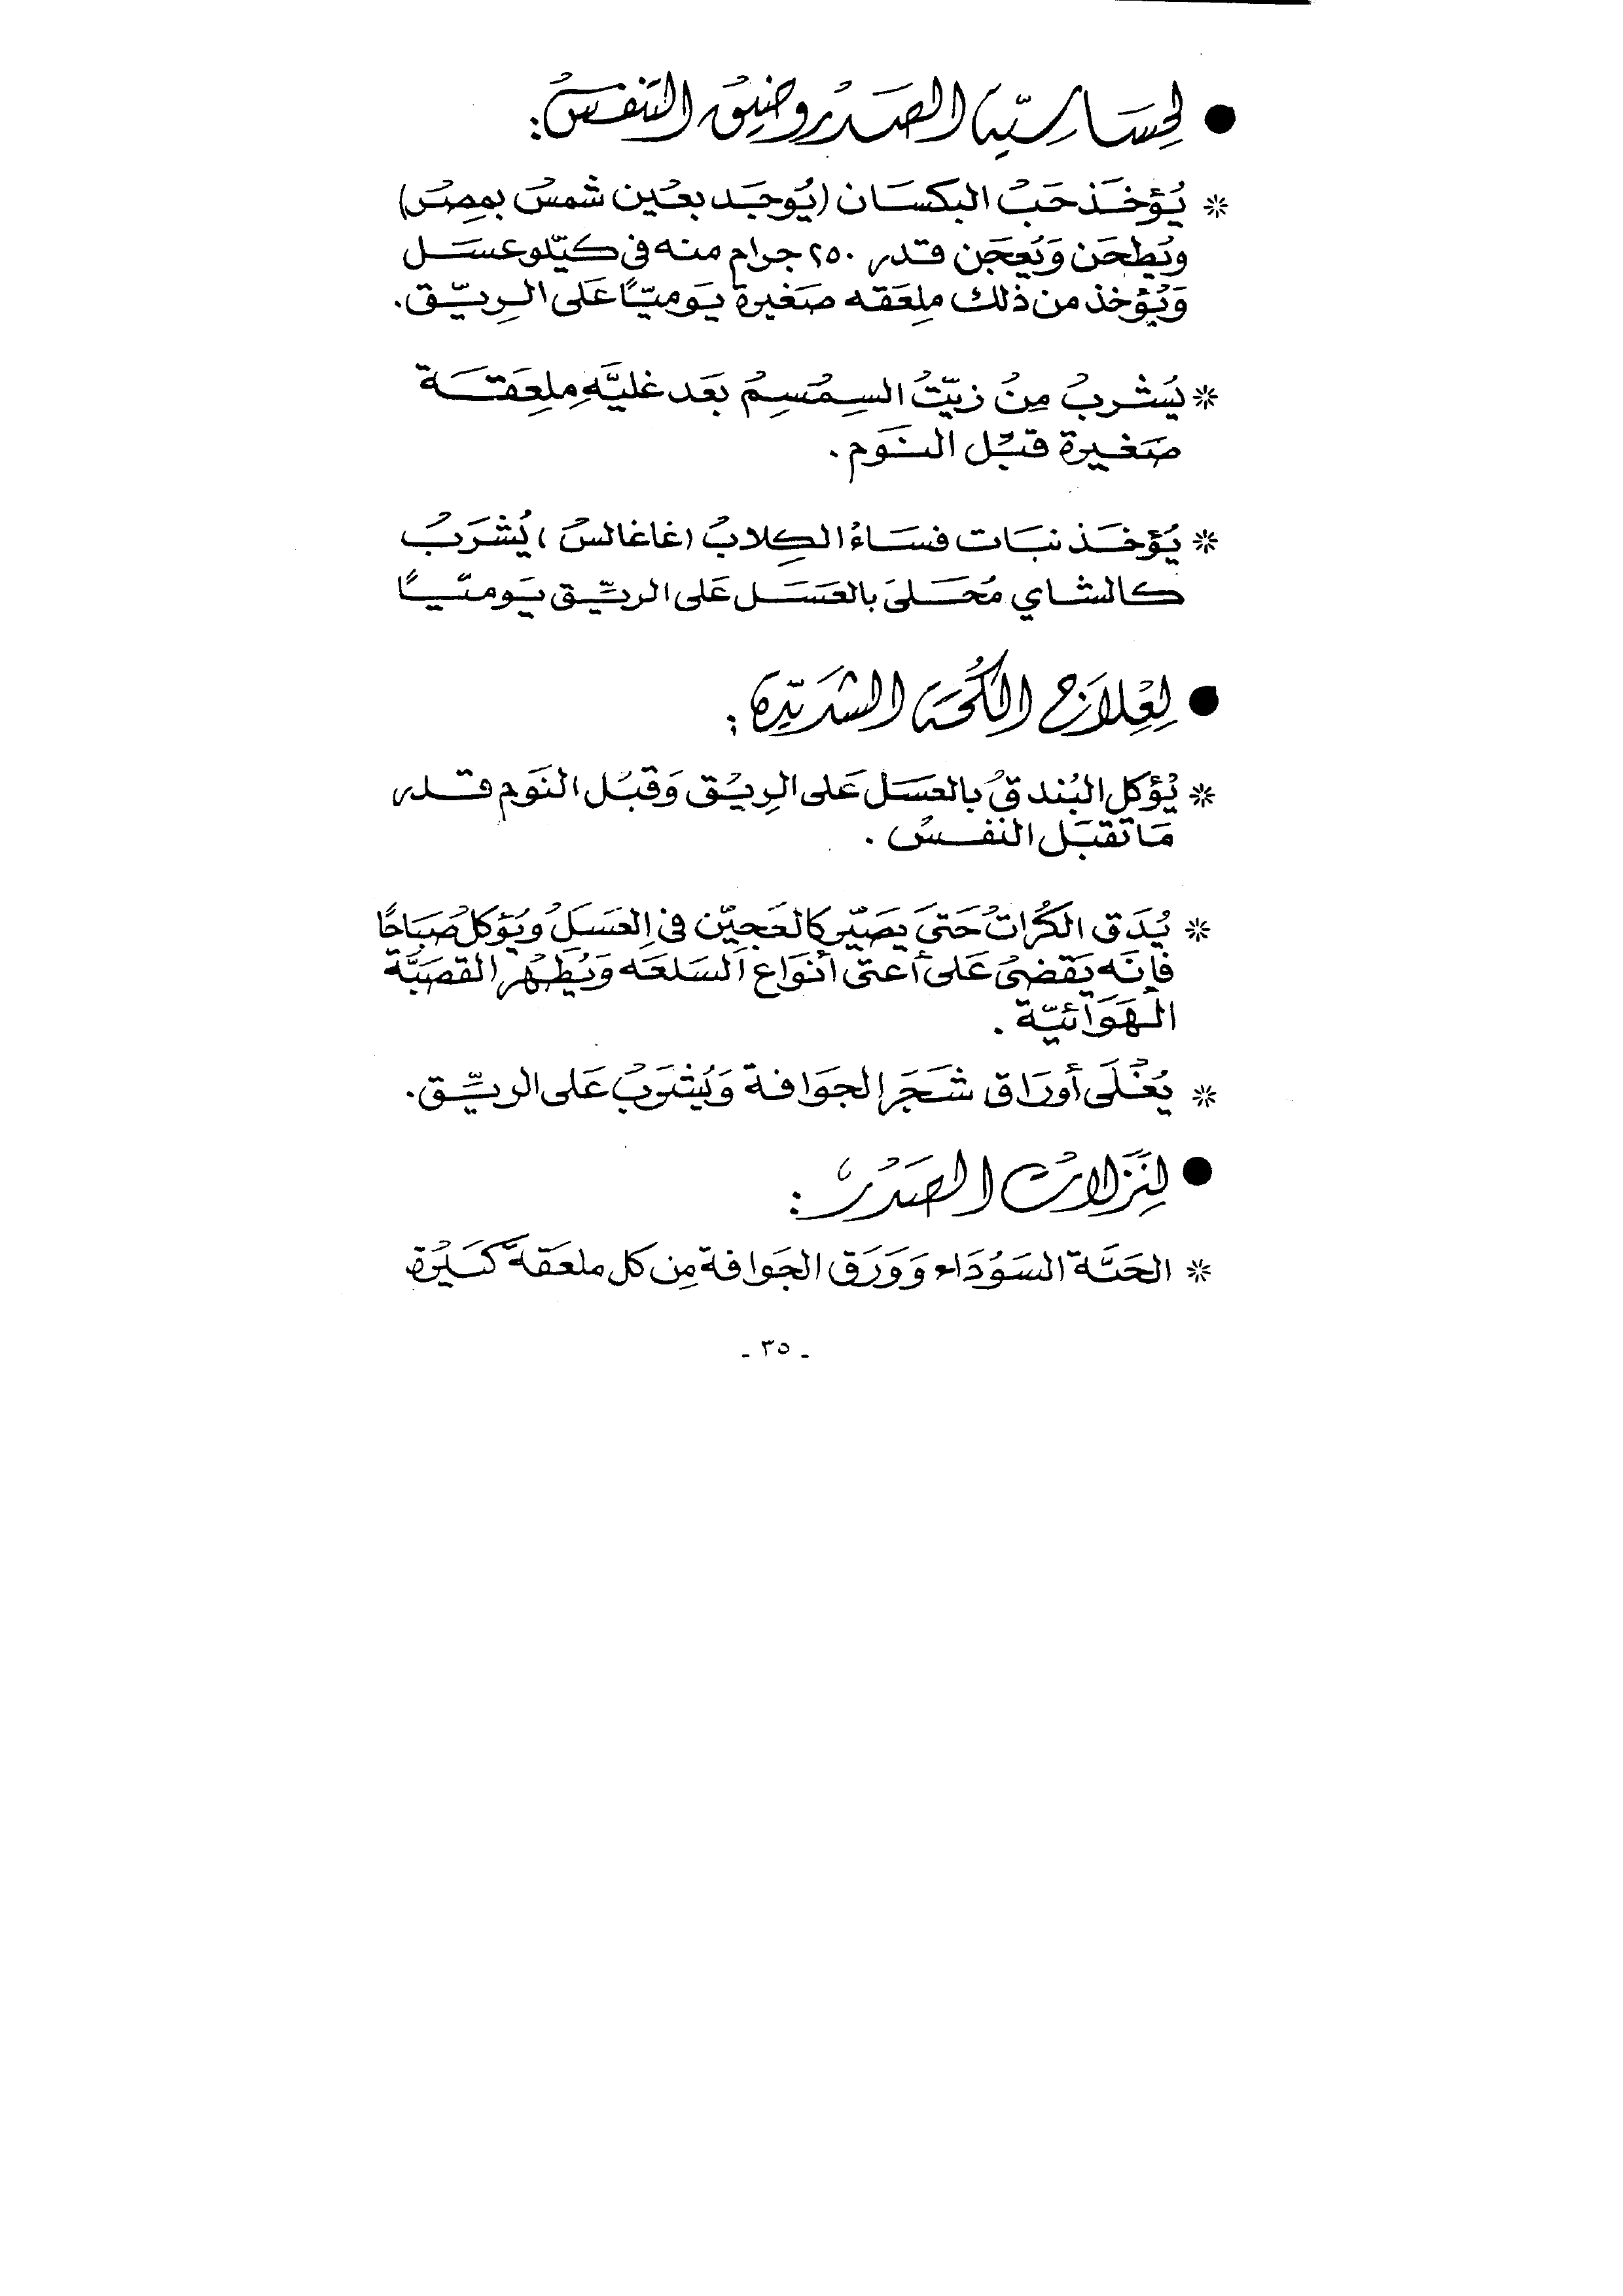 ● لحساسية الصدر وضيق التنفس :
* يُؤخَذ حَبُ البكسَان (يُوجَد بعُين شمسُ بمِصُر)
ويُطحَن وَيُعجَن قدر ٢٥٠ جرام منه فى كيّلو عسَل
وَيُؤخذ من ذلك ملِعَقه صَغيرة يَوميّاً عَلى الريّق .
* يُشربُ مِنُ زيّتُ السِمُسِمُ بَعَد غليَّهِ مِلعِقَة
صَغيرة قبُل النَوم .
* يُؤخَذ نبَات فسَاءُ الكِلابُ (غاغالسُ) يُشرَبُ
كالشاي مُحَلىَ بالعَسَل عَلى الريّق يَوميّاً
● لِعِلاَج الكُحَة الشَديّدة :
* يُؤكل البُندقُ بالعَسَل عَلى الرِيُق وَقبُل النَوم قدر
مَا تقبَل النفسُ .
* يُدَق الكُرَاتُ حَتىَ يصَيّر كالعَجيّن فى العَسَلُ ويُؤكلُ صُبَاحًا
فإنَه يَقضىُ عَلى أعتى أنوَاع السَلعَه وَيُطهُر القصَبَّة
الهَوَائيّة .
* يُغُلَى أورَاق شَجَر الجوَافة وَيُشرَبُ عَلى الريّق .
● لِنَزلات الصَدُر :
* الحَبَّة السَوُدَاء وَوَرَق الجَوافة مِن كل ملعَقةَ كبَيُرة
- ٣٥ -